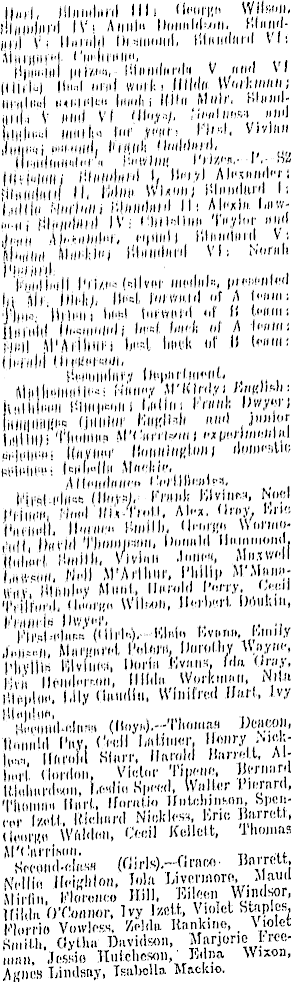 Hart, Standard III; George Wilson,
Standard IV; Annie Donaldson, Stand-
ard V; Harold Desmond, Standard VI;
Margaret Cochrane.
Special prizes.—Standards V and VI
(Girls) Best oral work; Hilda Workman;
neatest exercise book; Rita Muir. Stand-
ards V and VI (Boys). Neatness and
highest marks for year: First, Vivian
Jones; second, Frank Goddard.
Headmaster's Sewing Prizes.—P. S2
Division; Standard I, Beryl Alexander;
Standard II, Edna Wixon; Standard I;
Lottie Norton; Standard II; Alexia Law-
son; Standard IV; Christina Taylor and
Jean Alexander, equal; Standard V;
Mackie; Standard VI; Norah

Football Prizes (silver medals, presented
by Mr. Dick). Best forward of A team:
Thos. best forward of B team:
Harold Desmond; best back of A team:
Neil M'Arthur; best back of B team:
Gerald
Secondary Department.
Mathematics: Nancy M'Kirdy; English:
Kathleen Simpson; Latin: Frank Dwyer;
languages (junior English and junior
Latin): Thomas M'Carrison; experimental
science: Rayner Bonnington; domestic
science: Isabella Mackie.
Attendance Certificates.
First-class (Boys). Frank Elvines, Noel
Prince, Noel Rix-Trott, Alex. Gray, Eric
Parnell, Horace Smith, George Wormo-
Thompson, Donald Hammond,
Robert Smith, Vivian Jones, Maxwell
Lawson, Neil M'Arthur, Philip M'Mana-
way, Stanley Munt, Harold Perry, Cecil
Trilford, George Wilson, Herbert Donkin,
Francis Dwyer.
First-class (Girls).—Elsie Evans, Emily
Jensen, Margaret Peters, Dorothy Wayne,
Phyllis Elvines, Doris Evans, Ida Gray,
Eva Henderson, Hilda Workman, Nita
Lily Gaudin, Winifred Hart, Ivy

Second-class (Boys).—Thomas Deacon,
Ronald Pay, Cecil Latimer, Henry Nick-
less, Harold Starr, Harold Barrett, Al-
bert Gordon, Victor Tipene, Bernard
Richardson, Leslie Speed, Walter Pierard,
Thomas Hart, Horatio Hutchinson, Spen-
cer Izett, Richard Nickless, Eric Barrett,
George Walden, Cecil Kellett, Thomas
M'Carrison.
Second-class (Girls).—Grace Barrett,
Nellie Heighton, Iola Livermore, Maud
Mirfin, Florence Hill, Eileen Windsor,
Hilda O'Connor, Ivy Izett, Violet Staples,
Florrie Vowless, Zelda Rankine, Violet
Smith, Gytha Davidson, Marjorie Free-
man, Jessie Hutcheson, Edna Wixon,
Agnes Lindsay, Isabella Mackie.